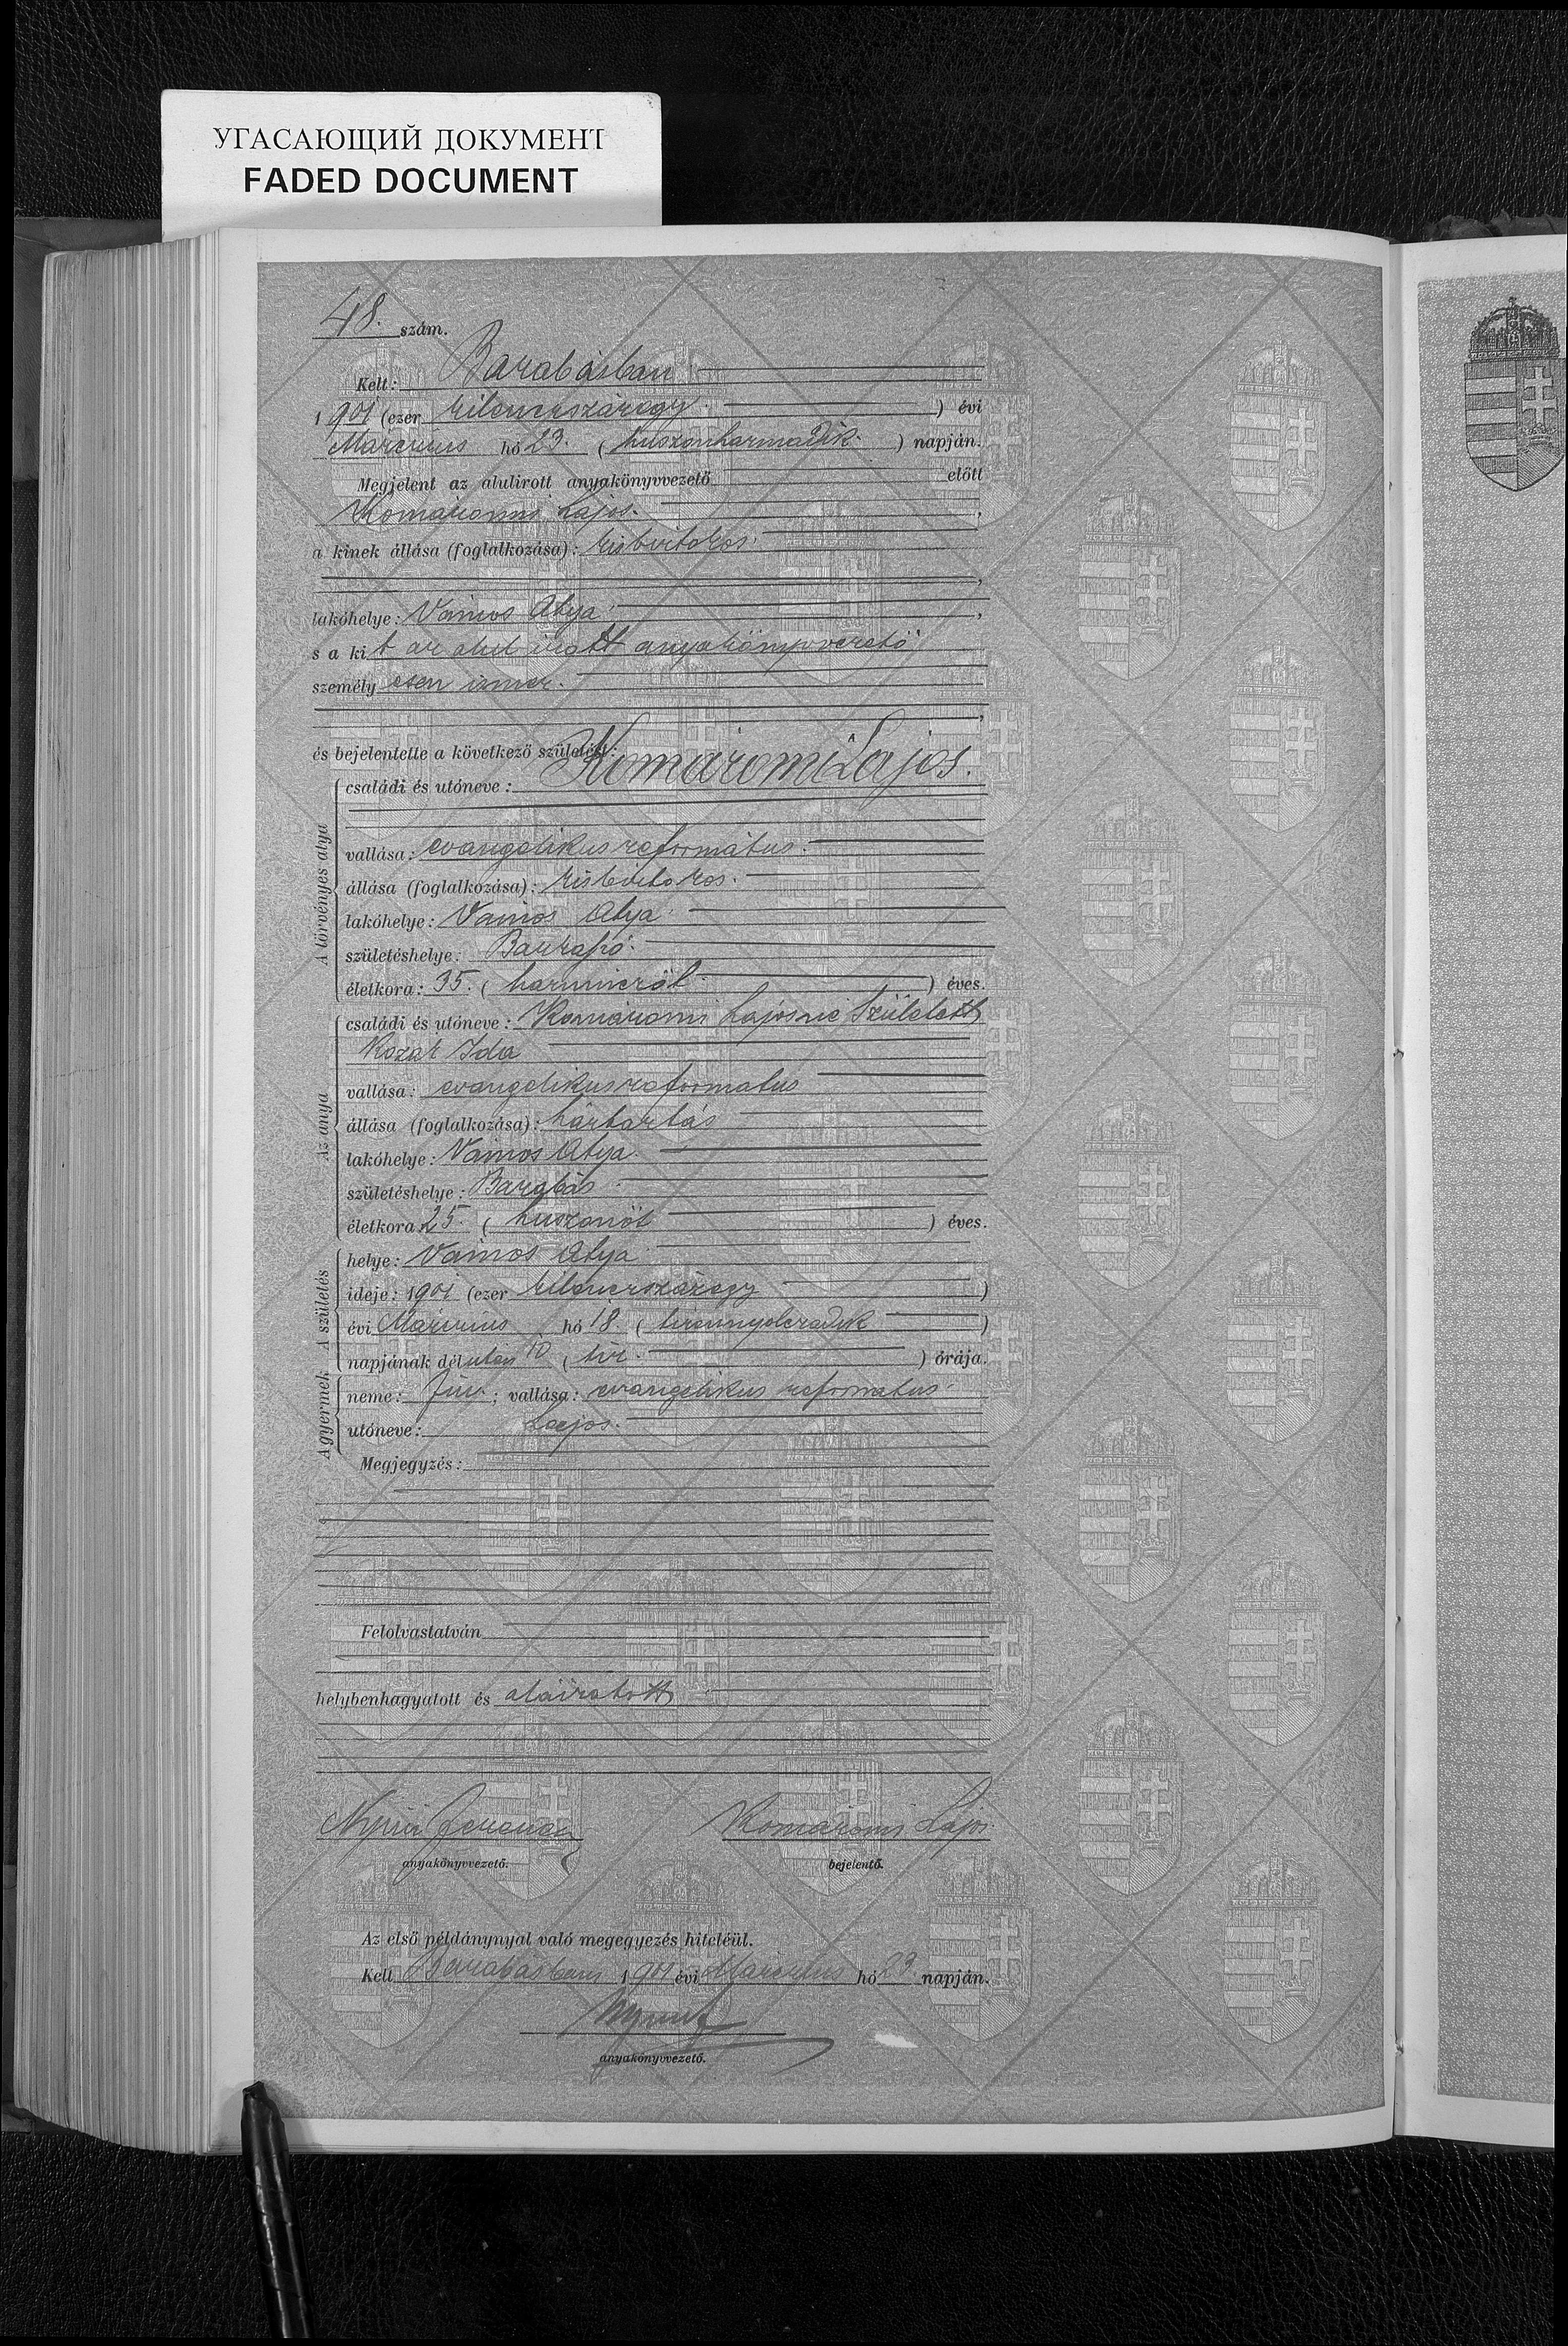 УГАСАЮЩИЙ ДОКУМЕНТ
FADED DOCUMENT
48. szám.
Kelt: Barabásban
1901 (ezer kilenczszázegy) évi
Márczius hó 23. (huszonharmadik.) napján.
Megjelent az alulirott anyakönyvvezető előtt
Komáromi Lajos.,
a kinek állása (foglalkozása): kisbirtokos.
,
lakóhelye: Vámos Atya,
s a kit az alul irott anyakönyvvezető
személyesen ismer.
,
és bejelentette a következő születést:
A törvényes atya
családi és utóneve: Komáromi Lajos.
vallása: evangelikus református.
állása (foglalkozása): kisbirtokos.
lakóhelye: Vámos Atya
születéshelye:
életkora: 35. (harminczöt) éves.
Az anya
családi és utóneve: Komáromi Lajosné született
Kozák Ida
vallása: evangelikus reformatus
állása (foglalkozása): háztartás
lakóhelye: Vámos Atya.
születéshelye: Barabás
életkora: 25. (huszonöt) éves.
A születés
helye: Vámos Atya
ideje: 1901 (ezer kilenczszázegy)
évi Márczius hó 18. (tizennyolczadik)
napjának délután 10 (tíz.) órája.
A gyermek
neme: fiu; vallása: evangelikus reformatus
utóneve: Lajos.
Megjegyzés:
Felolvastatván
helybenhagyatott és aláiratott
Nyiri Ferencz Komáromi Lajos
anyakönyvvezető. bejelentő.
Az első példánynyal való megegyezés hiteléül.
Kelt Barabásban 1901 évi Márczius hó 23 napján.
anyakönyvvezető.